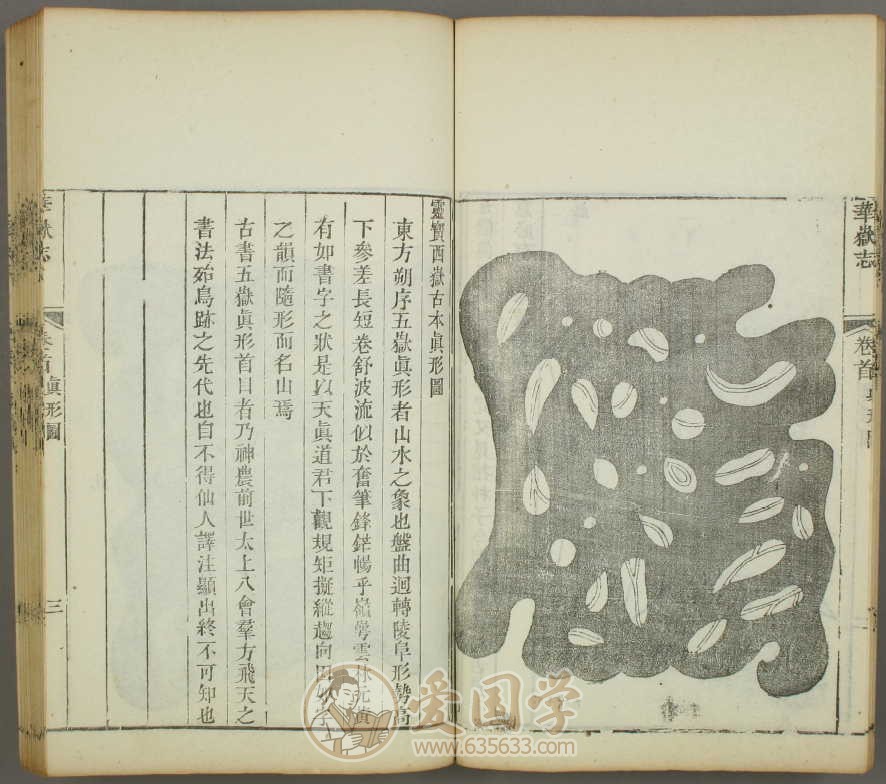 華嶽志
卷首
靈寶西嶽古本眞形圖
東方朔序五嶽眞形者山水之象也盤曲迴轉陵阜形勢高
下參差長短卷舒波流似於奮筆鋒鋩暢乎嶺崿雲林元黃
有如書字之狀是以天眞道君下觀規矩擬縱趨向因如字
之韻而隨形而名山焉
古書五嶽眞形首目者乃神農前世太上八會羣方飛天之
書法殆鳥跡之先代也自不得仙人譯注顯出終不可知也
華嶽志
卷首眞形圖
三
爱国学
www.635633.com